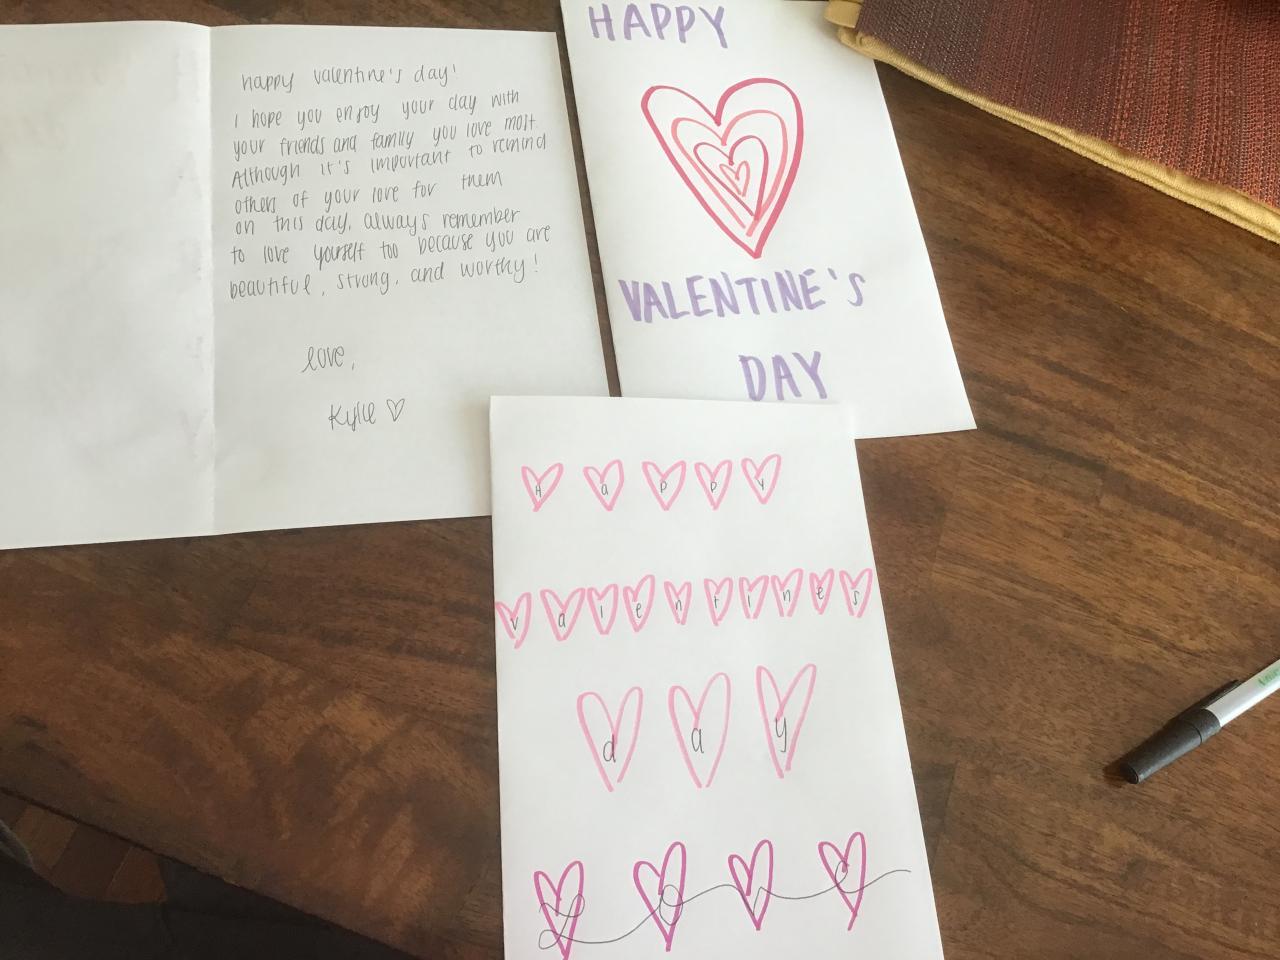 happy valentine's day!
I hope you enjoy your day with
your friends and family you love most.
Although it's important to remind
others of your love for them
on this day, always remember
to love yourself too because you are
beautiful, strong, and worthy!
love,
Kylie ♡
HAPPY
VALENTINE'S
DAY
Happy
valentines
day
Love